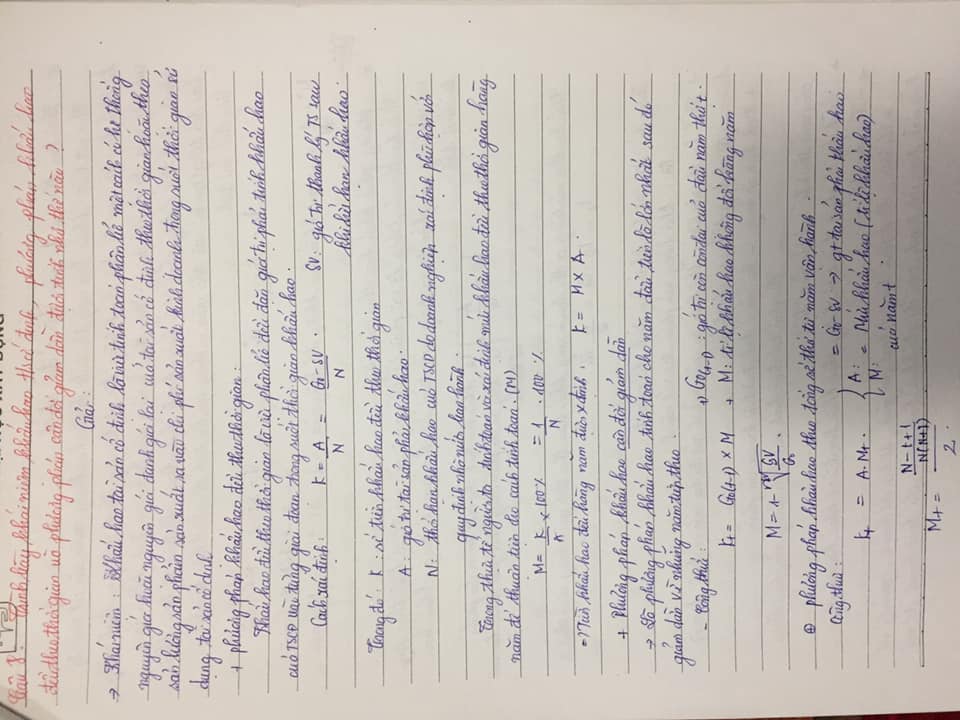 Câu 8: Trình bày khái niệm khấu hao tài sản cố định, phương pháp khấu hao
đều theo thời gian và phương pháp cân đối giảm dần được tính như thế nào ?
Giải:
→ Khái niệm : Khấu hao tài sản cố định là việc tính toán phân bổ một cách có hệ thống
nguyên giá hoặc nguyên giá đánh giá lại của tài sản cố định theo thời gian hoặc theo
sản lượng sản phẩm sản xuất ra vào chi phí sản xuất kinh doanh trong suốt thời gian sử
dụng tài sản cố định
+ phương pháp khấu hao đều theo thời gian:
Khấu hao đều theo thời gian là việc phân bổ đều đặn giá trị phải tính khấu hao
của TSCĐ vào từng giai đoạn trong suốt thời gian khấu hao.
Cách xác định: K = A/N = (G - SV)/N . SV: giá trị thanh lý TS sau
khi hết hạn khấu hao.
Trong đó: K : số tiền khấu hao đều theo thời gian
A: giá trị tài sản phải khấu hao.
N: thời hạn khấu hao của TSCĐ do doanh nghiệp xác định phù hợp với
quy định nhà nước ban hành.
Trong thực tế người ta tính toán và xác định mức khấu hao đều theo thời gian hằng
năm để thuận tiện cho cách tính toán. (M)
M = K/A x 100% = 1/N . 100 %
= Mức khấu hao đều hằng năm được tính. K = M x A.
+ Phương pháp khấu hao cân đối giảm dần
→ Là phương pháp khấu hao tính toán cho năm đầu tiên là lớn nhất sau đó
giảm dần về những năm tiếp theo.
- Công thức: + G(t-1) : giá trị còn lại của đầu năm thứ t.
Kt = G(t-1) x M + M: tỉ lệ khấu hao không đổi hằng năm
M = 1 - ᴺ√(SV/G)
⊕ phương pháp khấu hao theo tổng số thứ tự năm vận hành.
Công thức: = G - SV => gt tài sản phải khấu hao
Kt = A.Mt. { A: = Mức khấu hao (tỉ lệ khấu hao)
M: của năm t
Mt = (N - t + 1)/(N(N+1)/2)